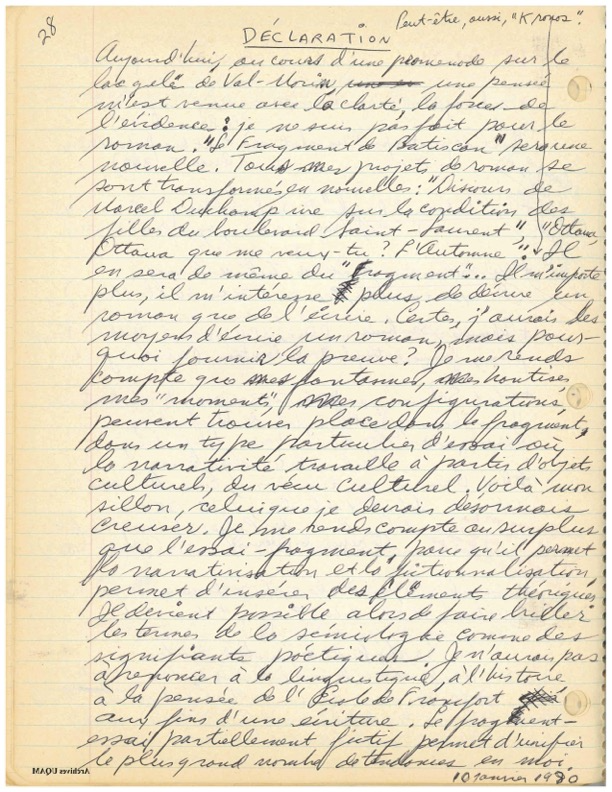 28
Peut-être, aussi, "Kronos".
DÉCLARATION
Aujourd'hui, au cours d'une promenade sur le
lac gelé de Val-Morin une pensée
m'est venue avec la clarté, la force de
l'évidence : je ne suis pas fait pour le
roman. "Le Fragment de Batiscan" sera une
nouvelle. Tous mes projets de roman se
sont transformés en nouvelles : "Discours de
Marcel Duchamp ivre sur la condition des
filles du boulevard Saint-Laurent" "Ottawa,
Ottawa que me veux-tu ? L'Automne". Il
en sera de même du "Fragment"... Il m'importe
plus, il m'intéresse plus, de décrire un
roman que de l'écrire. Certes, j'aurais les
moyens d'écrire un roman, mais pour-
quoi fournir la preuve ? Je me rends
compte que mes fantasmes, mes hantises
mes "moments", mes configurations,
peuvent trouver place dans le fragment,
dans un type particulier d'essai où
la narrativité travaille à partir d'objets
culturels, du vécu culturel. Voilà mon
sillon, celui que je devrais désormais
creuser. Je me rends compte au surplus
que l'essai-fragment, parce qu'il permet
la narrativisation et la fictionnalisation,
permet d'insérer des éléments théoriques.
Il devient possible alors de faire briller
les termes de la sémiologie comme des
signifiants poétiques. Je n'aurais pas
à renoncer à la linguistique, à l'histoire
à la pensée de l'École de Francfort
aux fins d'une écriture. Le fragment-
essai partiellement fictif permet d'unifier
le plus grand nombre de tendances en moi.
10 janvier 1980
Archives UQAM